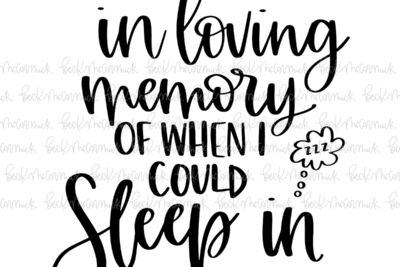 in loving
memory
OF WHEN I
COULD
zzz
Sleep in